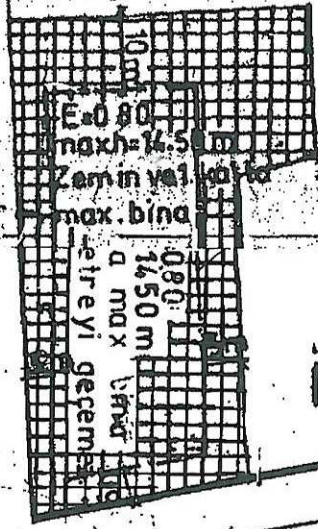 10m
E=0.80
maxh=14.50 m
Zemin ve 1. katta
max. bina
0.80
14.50 m
a max bina
etreyi geçemez